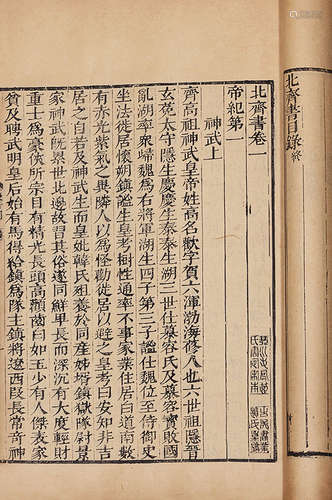 北齊書目錄終
北齊書卷一
帝紀第一
神武上
齊高祖神武皇帝姓高名歡字賀六渾渤海蓨人也六世祖隱晉
玄菟太守隱生慶慶生泰泰生湖三世仕慕容氏及慕容寶敗國
亂湖率衆歸魏爲右將軍湖生四子第三子謐仕魏位至侍御史
坐法徙居懷朔鎮謐生皇考樹性通率不事家業住居白道南數
有赤光紫氣之異隣人以爲怪勸徙居以避之皇考曰安知非吉
居之自若及神武生而皇妣韓氏殂養於同產姊壻鎮獄隊尉景
家神武既累世北邊故習其俗遂同鮮卑長而深沉有大度輕財
重士爲豪俠所宗目有精光長頭高顴齒白如玉少有人傑表家
貧及聘武明皇后始有馬得給鎮爲隊主鎮將遼西段長常奇神